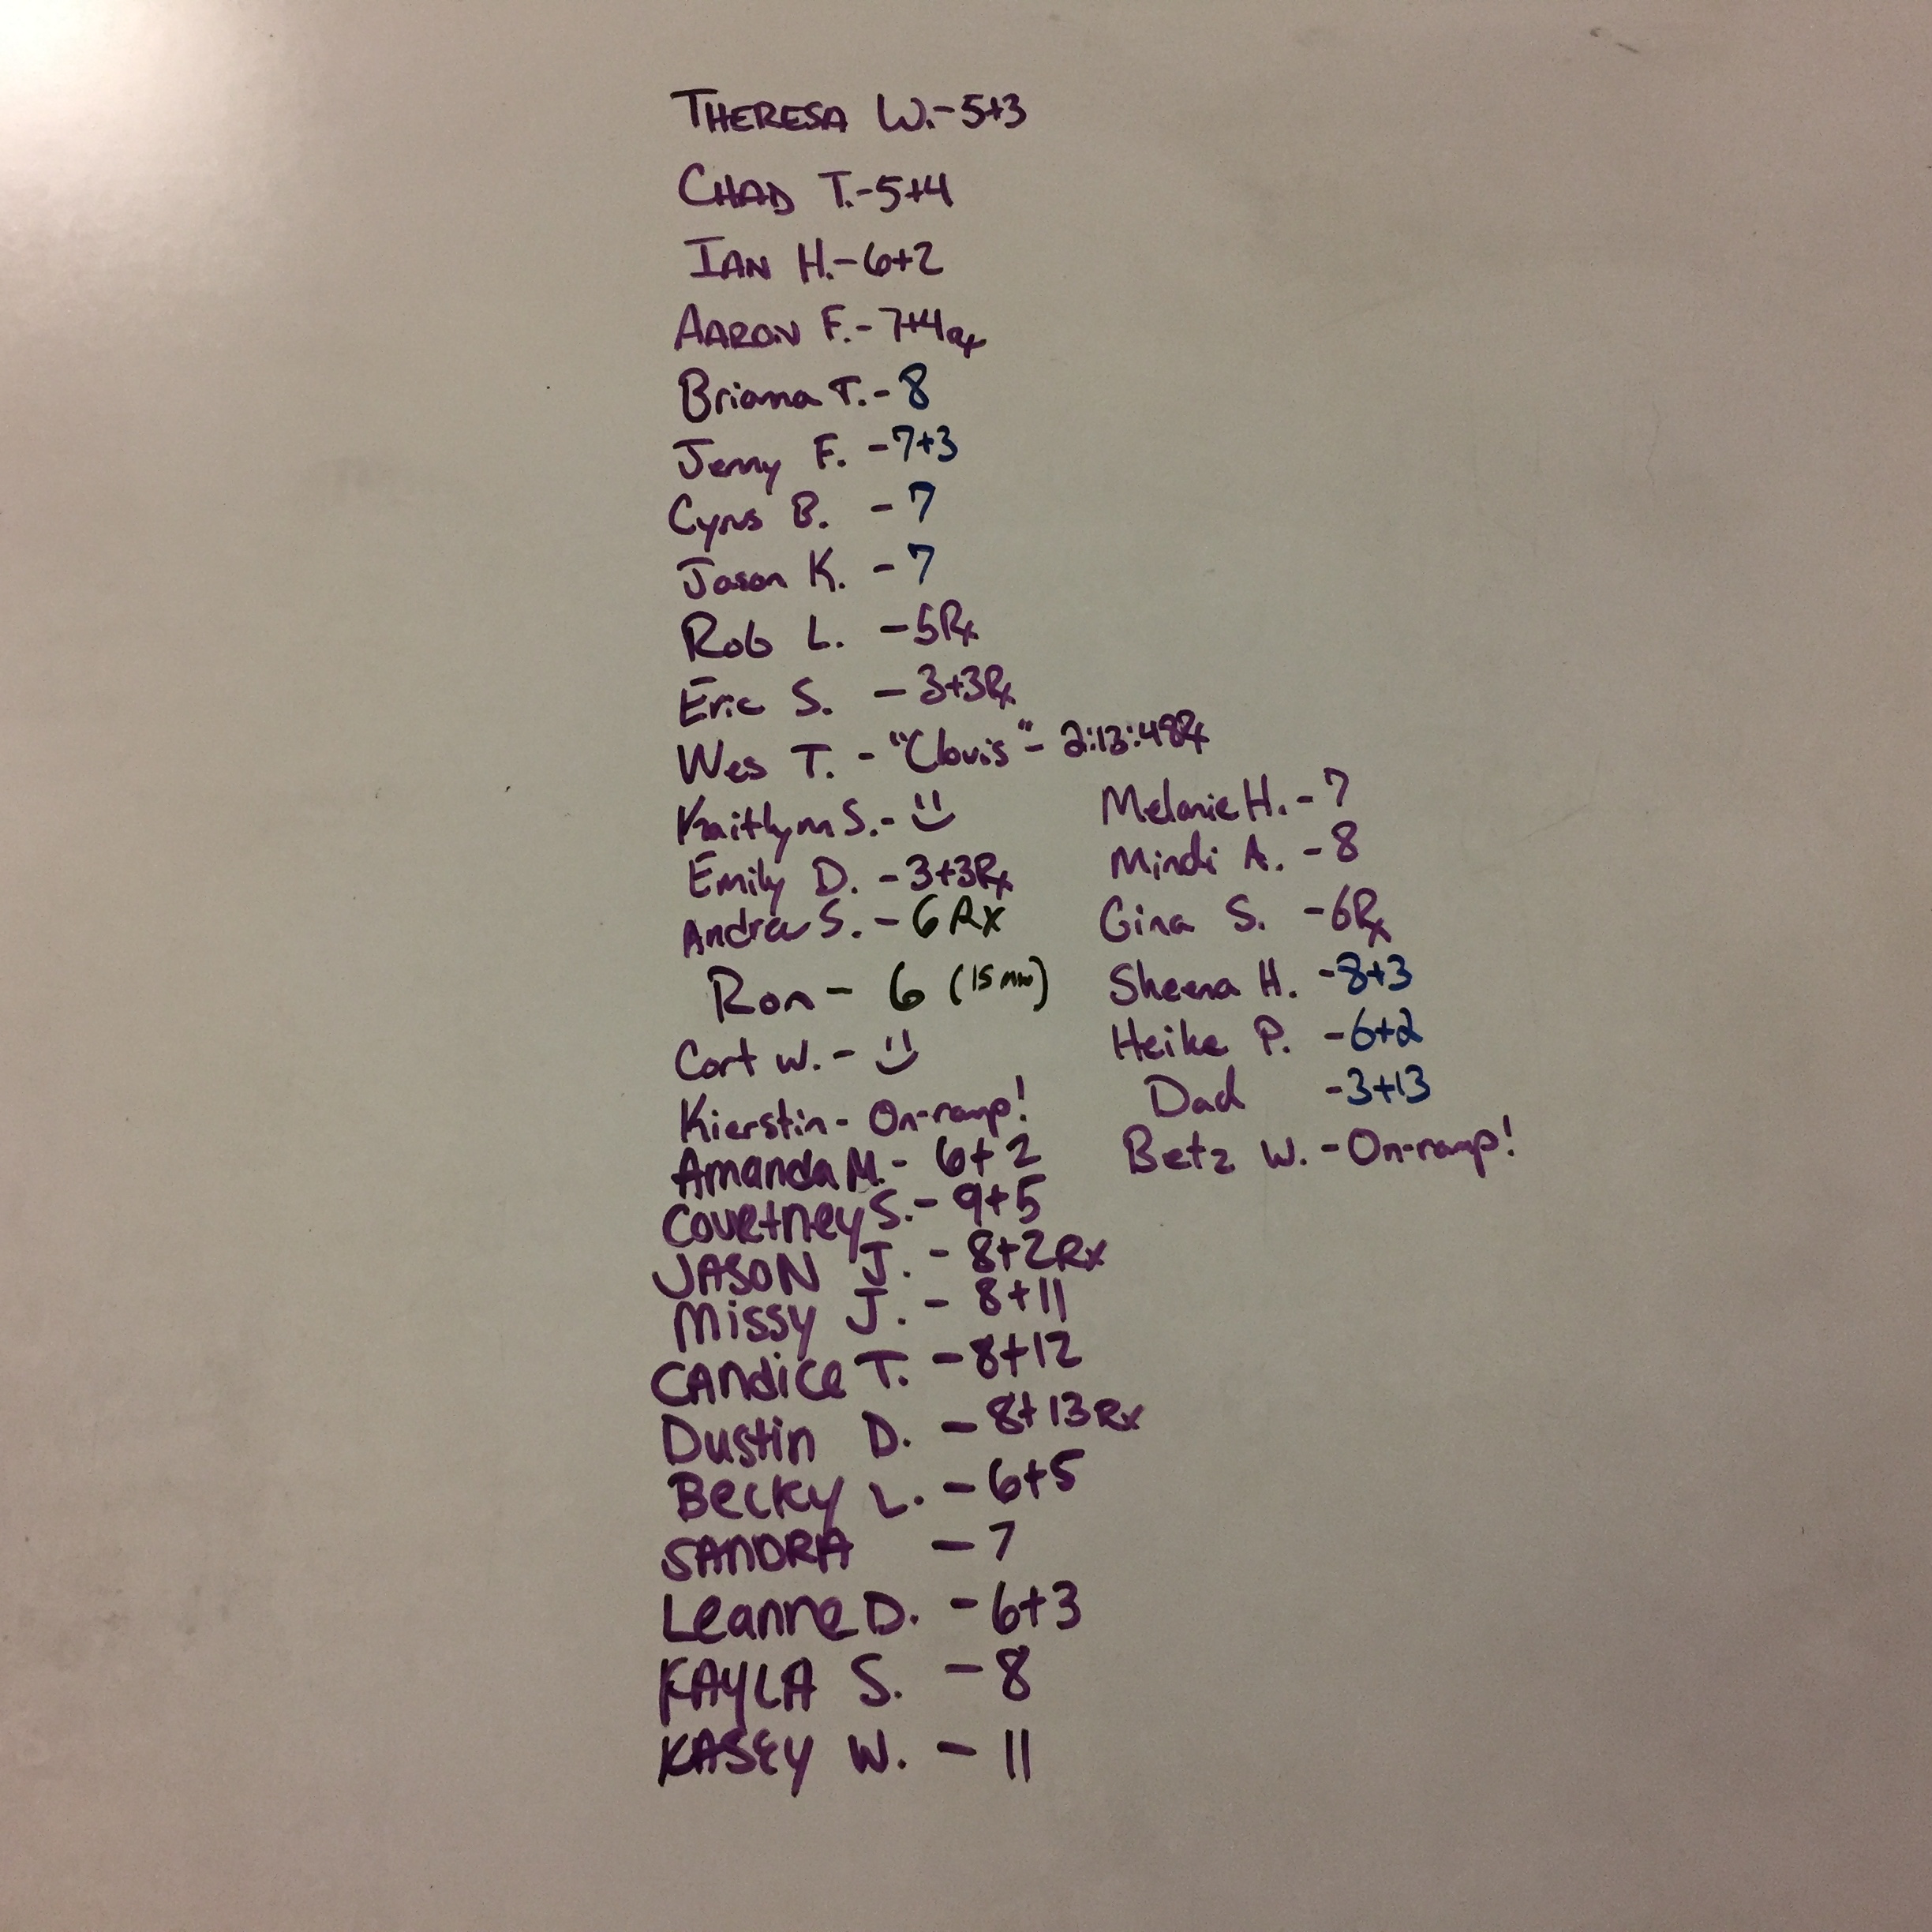 THERESA W.-5+3
CHAD T.-5+4
IAN H.-6+2
AARON F.-7+4Rx
Briana T.-8
Jenny F. -7+3
Cyrus B. -7
Jason K. -7
Rob L. -5Rx
Eric S. -3+3Rx
Wes T. -"Clovis"- 2:13:48Rx
Kaitlynn S.- :)
Emily D. -3+3Rx
Andrea S. -6Rx
Ron - 6 (15 min)
Cort W. - :)
Kierstin - On-ramp!
Amanda M.- 6+2
Courtney S.- 9+5
JASON J. - 8+2Rx
Missy J. - 8+11
CANDICE T. -8+12
Dustin D. -8+13Rx
Becky L. -6+5
SANDRA -7
Leanne D. -6+3
KAYLA S. -8
KASEY W. - 11
Melanie H. -7
Mindi A. -8
Gina S. -6Rx
Sheena H. -8+3
Heike P. -6+2
Dad -3+13
Betz W. -On-ramp!